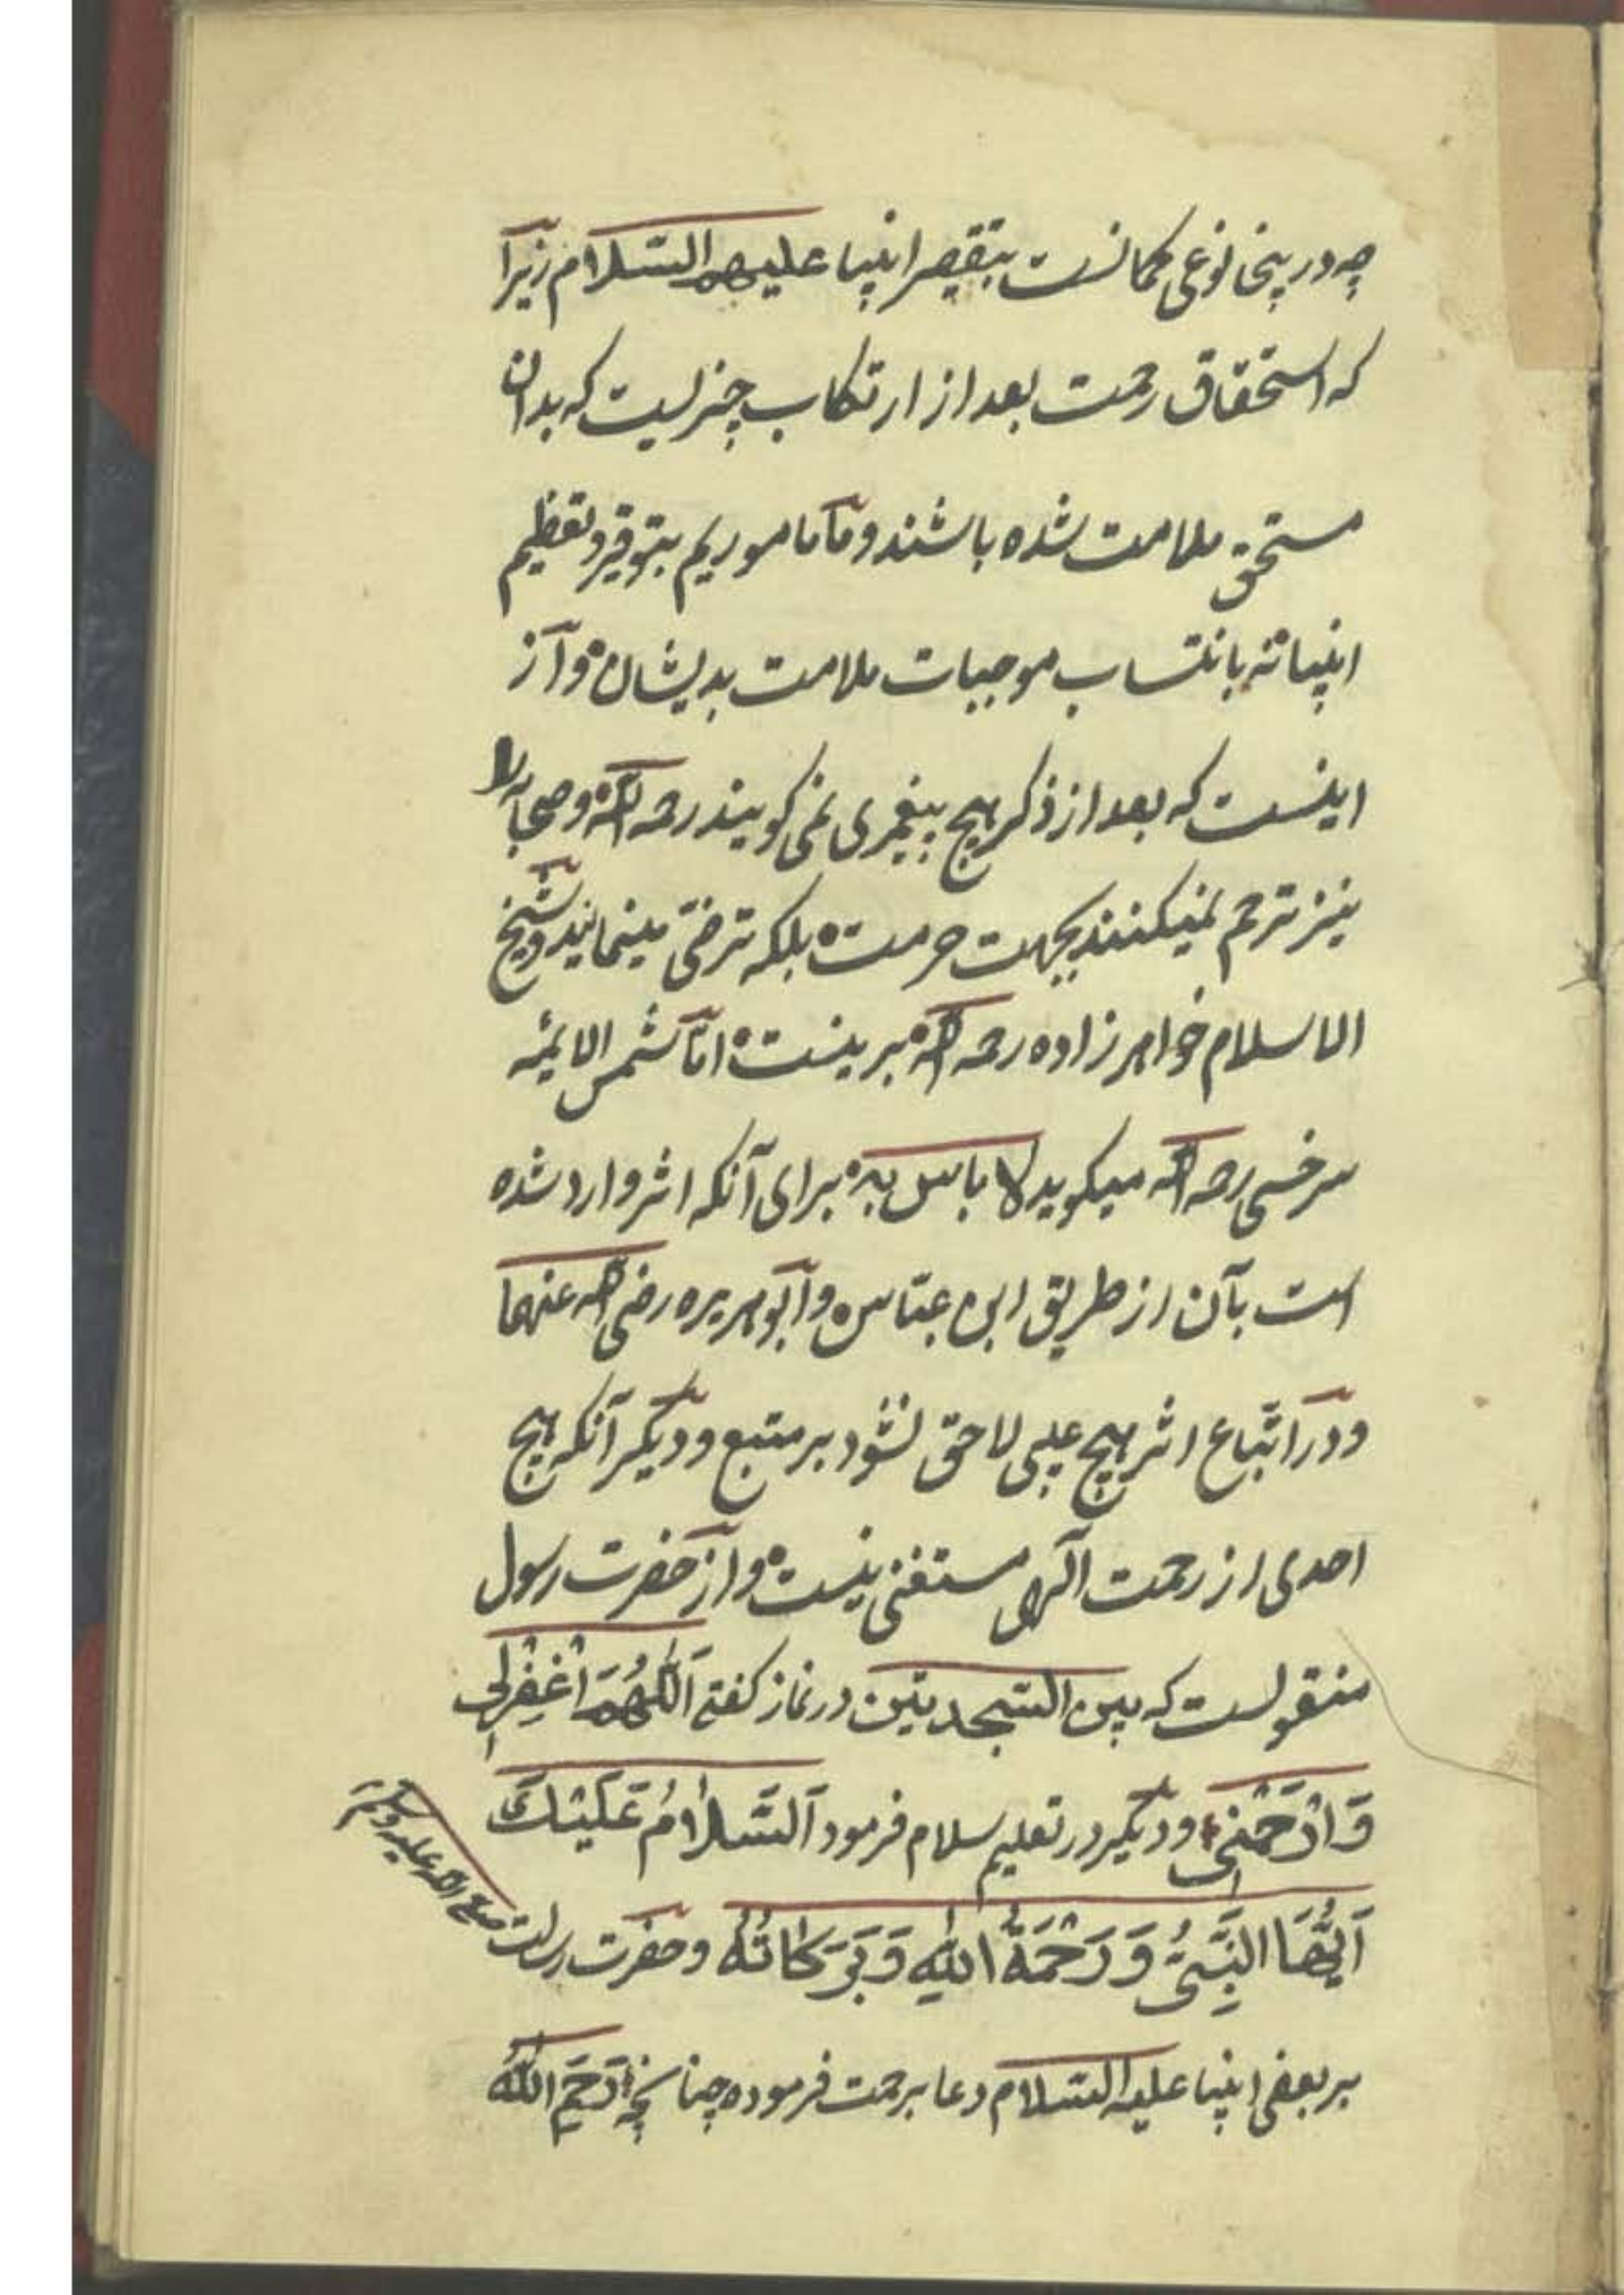 چه درینجا نوعی گمانست بتقصیر انبیا علیهم السلام زیرا
که استحقاق رحمت بعد از ارتکاب چیزیست که بدان
مستحق ملامت شده باشند و ما ماموریم بتوقیر و تعظیم
انبیا نه بانتساب موجبات ملامت بدیشان و از
اینست که بعد از ذکر هیچ پیغمبری نمی گویند رحمه الله و صحابه را
نیز ترحم نمیکنند بجهت حرمت بلکه ترضّی مینمایند و شیخ
الاسلام خواهر زاده رحمه الله برینست امّا شمس الایٔمه
سرخسی رحمه الله میگوید لا باس به برای آنکه اثر وارد شده
است بآن از طریق ابن عبّاس و ابو هریره رضی الله عنهما
و در اتّباع اثر هیچ عیبی لاحق نشود بر متبع و دیگر آنکه هیچ
احدی از رحمت الهی مستغنی نیست و از حضرت رسول
منقولست که بین السّجدیتین در نماز گفتی اَللّٰهُمَّ اغْفِرْلِی
وَ ارْحَمْنِی و دیگر در تعلیم سلام فرمود اَلسَّلَامُ عَلَیْكَ
اَیُّهَا النَّبِیُّ وَ رَحْمَةُ اللهِ وَ بَرَکَاتُهُ و حضرت رسالت صلی الله علیه وسلم
بر بعضی انبیا علیه السّلام دعا برحمت فرموده چنانچه رَحِمَ اللهُ